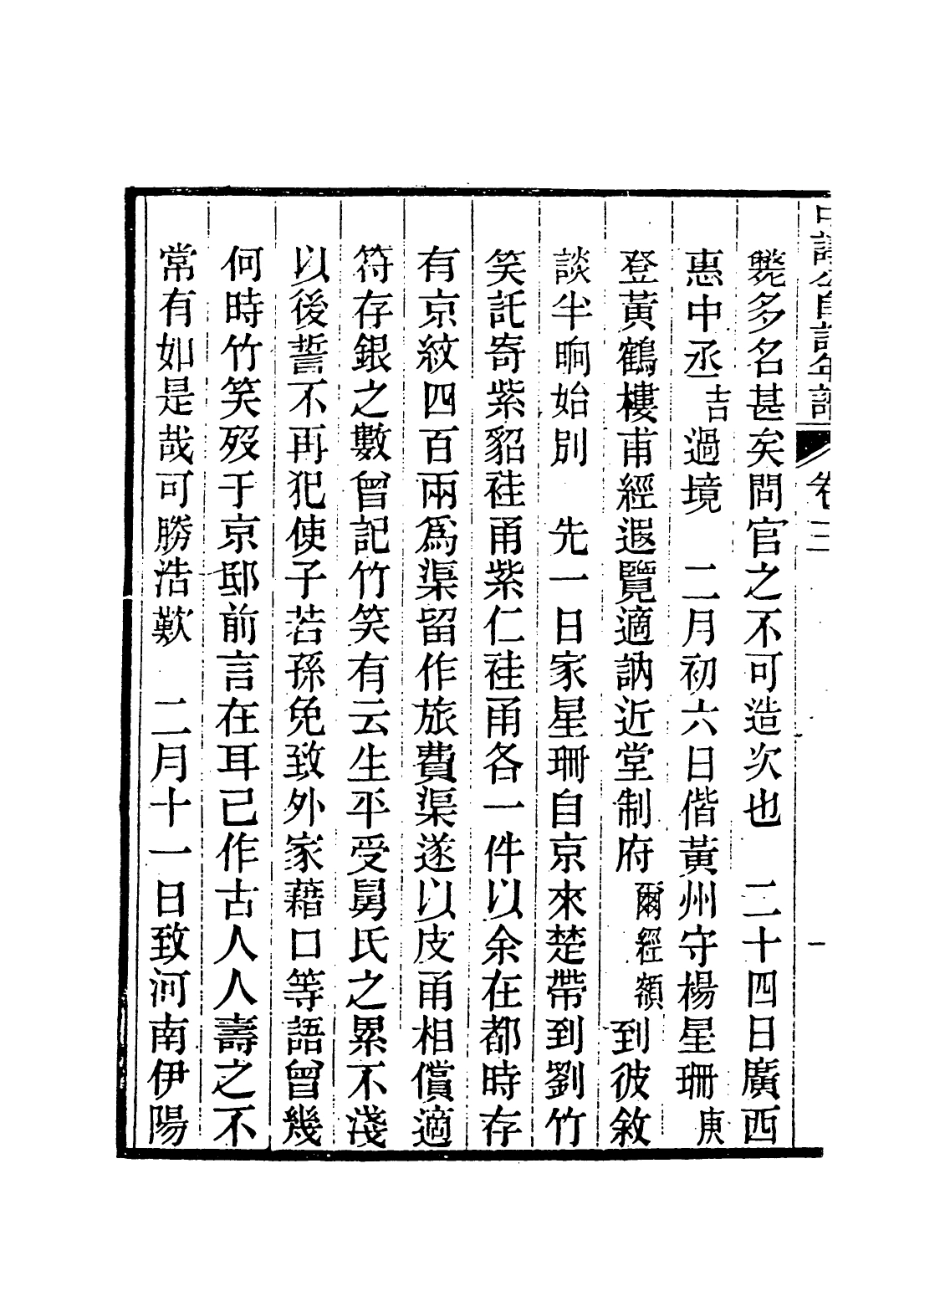 中議公自訂年譜 卷 一
斃多名甚矣問官之不可造次也　二十四日廣西
惠中丞吉過境　二月初六日偕黃州守楊星珊庚
登黃鶴樓甫經遐覽適訥近堂制府爾經額到彼敘
談半晌始別　先一日家星珊自京來楚帶到劉竹
笑託寄紫貂袿甬紫仁袿甬各一件以余在都時存
有京紋四百兩爲渠留作旅費渠遂以皮甬相償適
符存銀之數曾記竹笑有云生平受舅氏之累不淺
以後誓不再犯使子若孫免致外家藉口等語曾幾
何時竹笑歿于京邸前言在耳已作古人人壽之不
常有如是哉可勝浩歎　二月十一日致河南伊陽